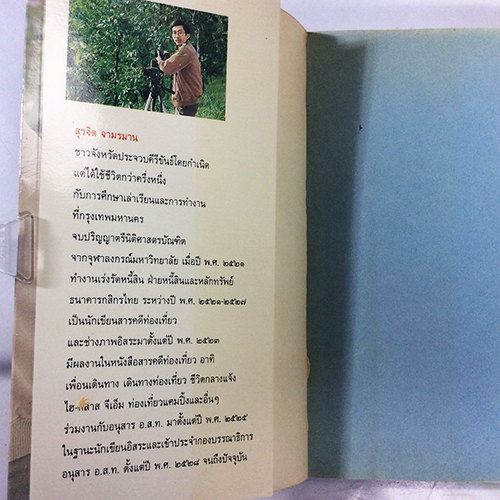 สุรจิต จามรมาน
ชาวจังหวัดประจวบคีรีขันธ์โดยกำเนิด
แต่ได้ใช้ชีวิตกว่าครึ่งหนึ่ง
กับการศึกษาเล่าเรียนและการทำงาน
ที่กรุงเทพมหานคร
จบปริญญาตรีนิติศาสตรบัณฑิต
จากจุฬาลงกรณ์มหาวิทยาลัย เมื่อปี พ.ศ. ๒๕๒๑
ทำงานเร่งรัดหนี้สิน ฝ่ายหนี้สินและหลักทรัพย์
ธนาคารกสิกรไทย ระหว่างปี พ.ศ. ๒๕๒๑-๒๕๒๗
เป็นนักเขียนสารคดีท่องเที่ยว
และช่างภาพอิสระมาตั้งแต่ปี พ.ศ. ๒๕๒๓
มีผลงานในหนังสือสารคดีท่องเที่ยว อาทิ
เพื่อนเดินทาง เดินทางท่องเที่ยว ชีวิตกลางแจ้ง
ไฮ-คลาส จีเอ็ม ท่องเที่ยวแคมปิ้งและอื่นๆ
ร่วมงานกับอนุสาร อ.ส.ท. มาตั้งแต่ปี พ.ศ. ๒๕๒๕
ในฐานะนักเขียนอิสระและเข้าประจำกองบรรณาธิการ
อนุสาร อ.ส.ท. ตั้งแต่ปี พ.ศ. ๒๕๒๘ จนถึงปัจจุบัน